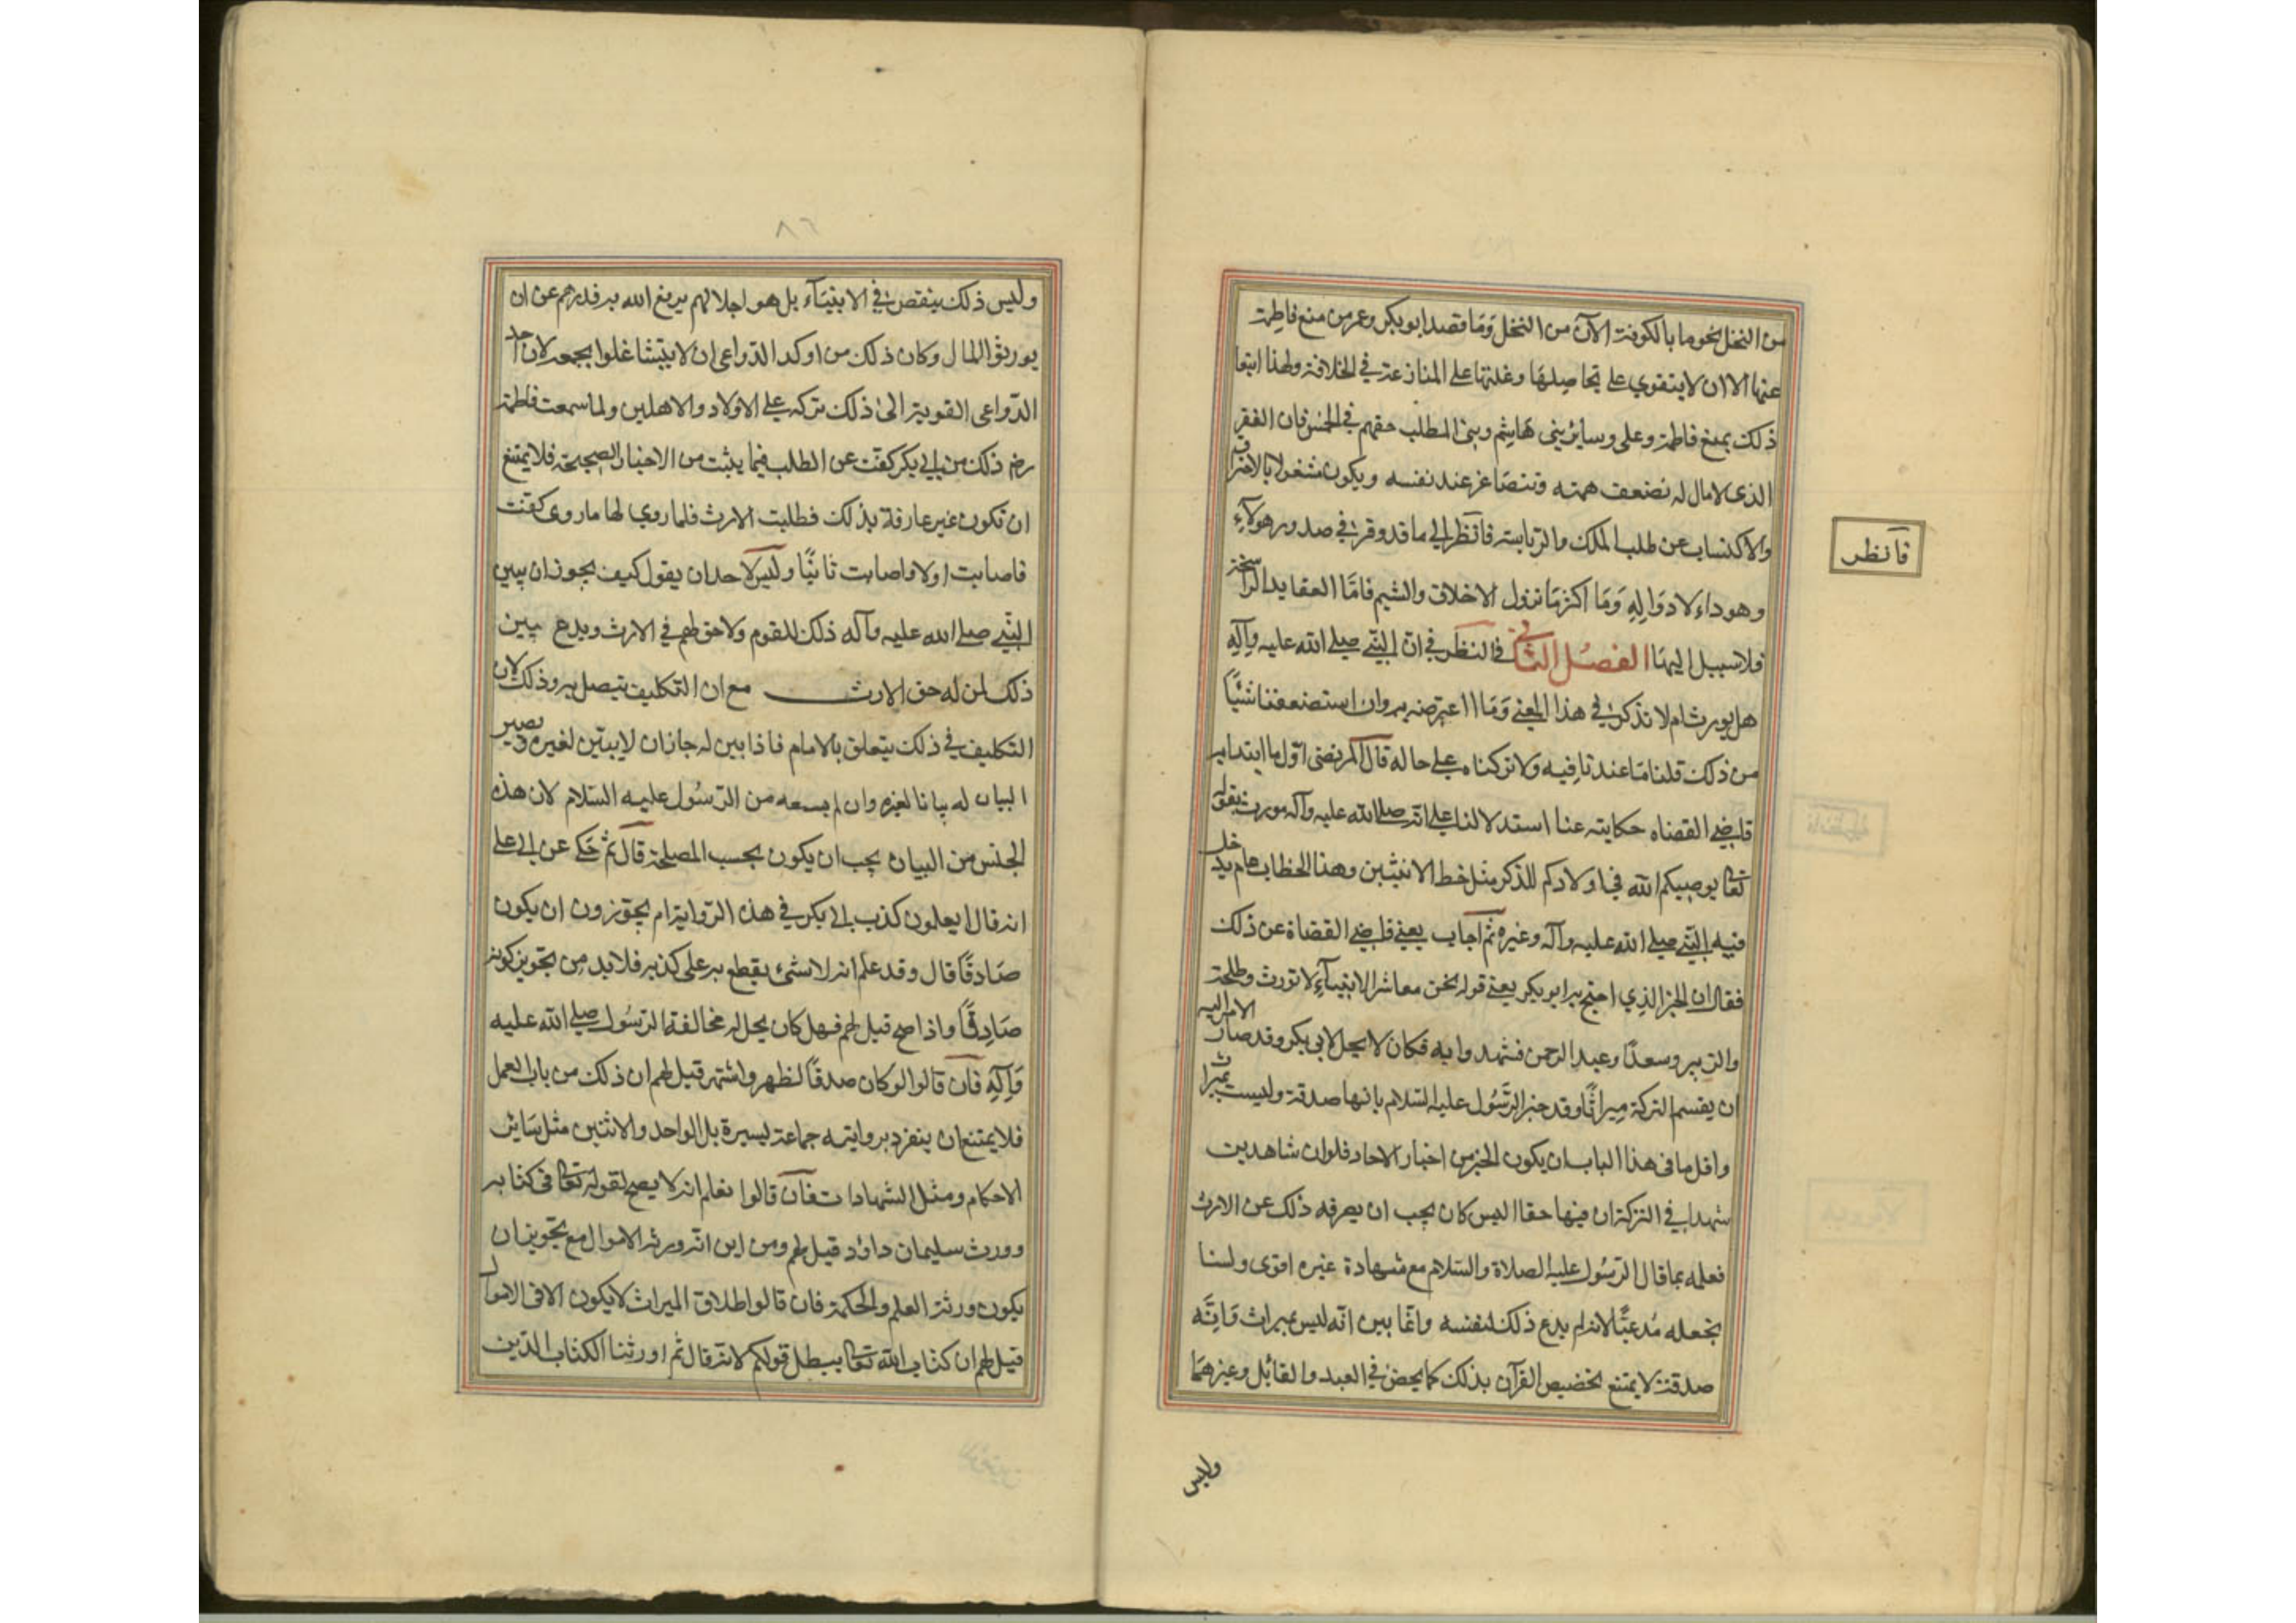 من النخل نحو ما بالكوفة الآن من النخل وما قصد ابو بكر وعمر من منع فاطمة
عنها الا ان لا يتقوي علي بحاصلها وغلتها على المنازعة في الخلافة ولهذا اتبعا
ذلك بمنع فاطمة وعلي وسائر بني هاشم وبني المطلب حقهم في الخمس فان الفقير
الذي لا مال له تضعف همته وتتصاغر عند نفسه ويكون مشغولا بالاحتراف
والاكتساب عن طلب الملك والرياسة فانظر الي ما قد وقر في صدور هؤلاء
فانظر
وهو داء لا دواء له وما اكثر ما تزول الاخلاق والشيم فاما العقايد الراسخة
فلا سبيل اليها الفصل الثاني في النظر في ان النبي صلي الله عليه وآله
هل يورث ام لا نذكر في هذا المعني وما اعترضه به وان استضعفنا شيئًا
من ذلك قلنا ما عندنا فيه ولا تركناه علي حاله قال المرتضى اول ما ابتدا به
قاضي القضاه حكايته عنا استدلالنا علي انه صلي الله عليه وآله مورث بقوله
تعا يوصيكم الله في اولادكم للذكر مثل حظ الانثيين وهذا الخطاب عام يدخل
فيه النبي صلي الله عليه وآله وغيره ثم اجاب يعني قاضي القضاة عن ذلك
فقال ان الخبر الذي احتج به ابو بكر يعني قوله نحن معاشر الانبياء لا نورث وطلحة
والزبير وسعدًا وعبد الرحمن فشهدوا به فكان لا يحل لابي بكر وقد صار الامر اليه
ان يقسم التركة ميراثًا وقد خبر الرسول عليه السلام بانها صدقة وليست بميراث
واقل ما في هذا الباب ان يكون الخبر من اخبار الاحاد فلو ان شاهدين
شهدا في التركة ان فيها حقا اليس كان يجب ان يصرفه ذلك عن الارث
فعلمه بما قال الرسول عليه الصلاة والسلام مع شهادة غيره اقوى ولسنا
نجعله مدعيًا لانه لم يدع ذلك لنفسه وانما بين انه ليس بميراث وانه
صدقة لا يمتنع تخصيص القرآن بذلك كما يخص في العبد والقاتل وغيرهما
وليس
٨٦
وليس ذلك ينقص في الانبياء بل هو اجلالهم يرفع الله به قدرهم عن ان
يورثوا المال وكان ذلك من اوكد الدواعي ان لا يتشاغلوا بجمعه لان احد
الدواعي القوية الى ذلك تركه علي الاولاد والاهلين ولما سمعت فاطمة
رضه ذلك من ابي بكر كفت عن الطلب فيما يثبت من الاخبار الصحيحة فلا يمتنع
ان تكون غير عارفة بذلك فطلبت الارث فلما روي لها ما روى كفت
فاصابت اولا واصابت ثانيًا وليس لاحد ان يقول كيف يجوز ان يبين
النبي صلي الله عليه وآله ذلك للقوم ولا حق لهم في الارث ويدع يبين
ذلك لمن له حق الارث مع ان التكليف يتصل به وذلك لان
التكليف في ذلك يتعلق بالامام فاذا بين له جاز ان لا يبين لغيره ويصير
البيان له بيانا لغيره وان لم يسمعه من الرسول عليه السلام لان هذه
الجنس من البيان يجب ان يكون بحسب المصلحة قال ثم حكي عن ابي علي
انه قال ايعلمون كذب ابي بكر في هذه الرواية ام يجوزون ان يكون
صادقًا قال وقد علم انه لا شئ يقطع به على كذبه فلا بد من تجويز كونه
صادقًا واذا صح قيل لهم فهل كان يحل له مخالفة الرسول صلي الله عليه
وآله فان قالوا لو كان صدقًا لظهر واشتهر قيل لهم ان ذلك من باب العمل
فلا يمتنع ان ينفرد بروايته جماعة يسيرة بل الواحد والاثنين مثل سائر
الاحكام ومثل الشهادات فان قالوا نعلم انه لا يصح لقوله تعا في كتابه
وورث سليمان داؤد قيل لهم ومن اين انه ورثه الاموال مع تجويز ان
يكون ورثه العلم والحكمة فان قالوا اطلاق الميراث لا يكون الا في الاموال
قيل لهم ان كتاب الله تعا يبطل قولكم لانه قال ثم اورثنا الكتاب الذين